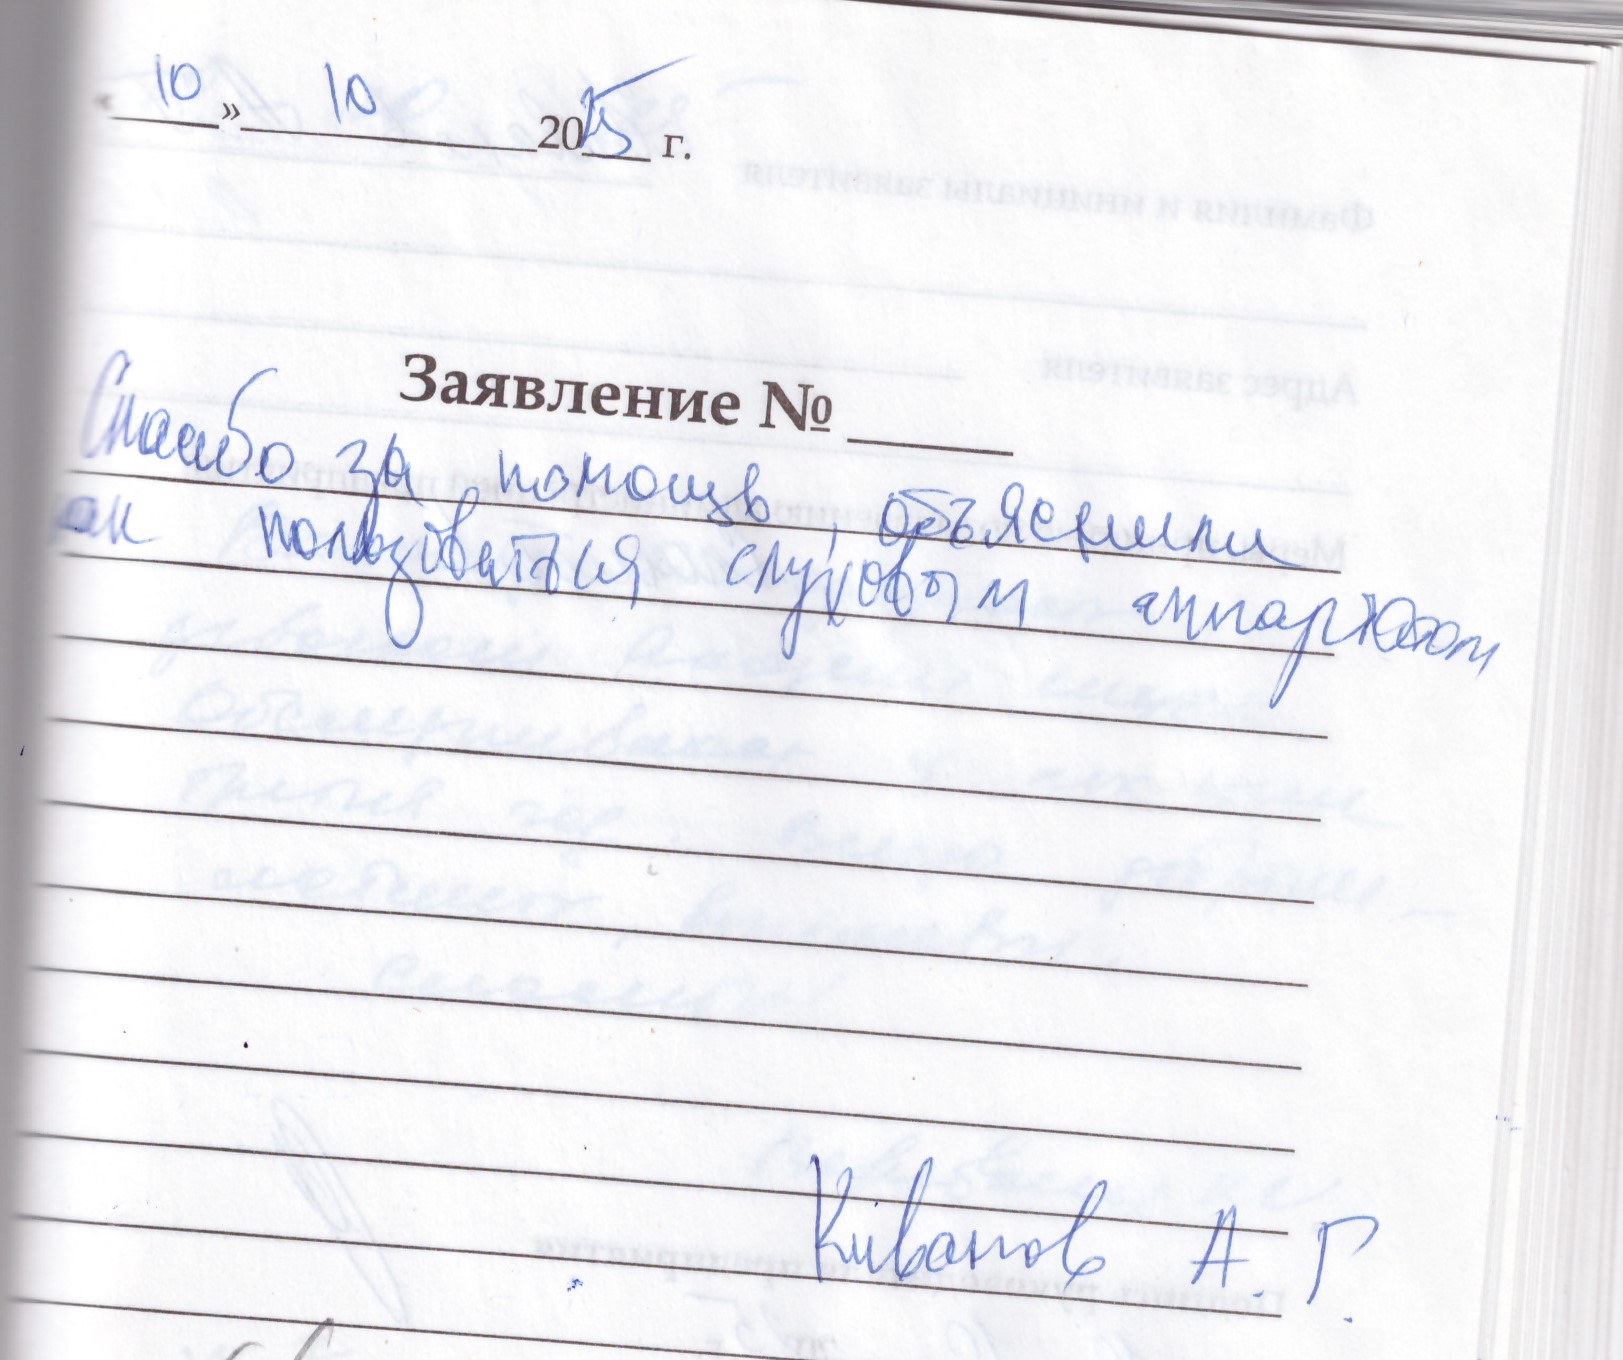 10 » 10 2025 г.
Заявление №
Спасибо за помощь, объяснили
как пользоваться слуховым аппаратом
Киванов А. Г.